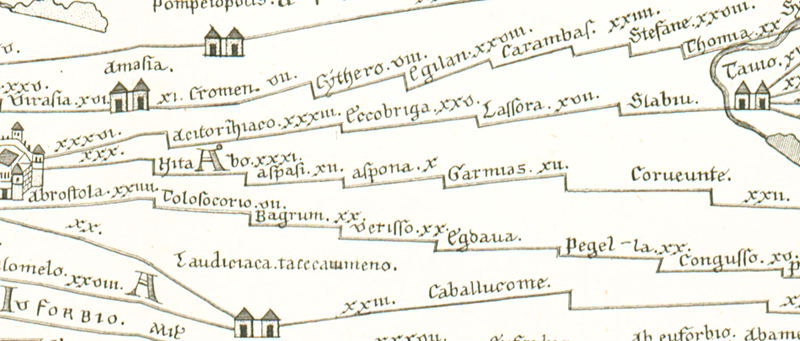 Pompeiopolis.
v.
Amasia.
xxv. Virasia.xvi. xi. Cromen.vii. Cythero.viii. Egilan.xxviii. Carambas.xxiiii. Stefane.xxviii. Thomia.xx
Tavio.xv
xxxvi. Acitorihiaco.xxxiii. Eccobriga.xxv. Lassora.xvii. Stabiu.
xxx. A
bo.xxxi. aspasi.xii. aspona.x Garmias.xii. Corveunte. xxii.
Abrostola.xxiiii. Tolosocorio.vii. Bagrum.xx. Vetisso.xx. Egdava. Pegel-la.xx. Congusso.xv.
xx.
Laudiciaca.tacecaumeno.
lomelo.xxviii. A
Iuforbio. xxiii. Caballucome.
xxxvii. ab euforbio. Abame